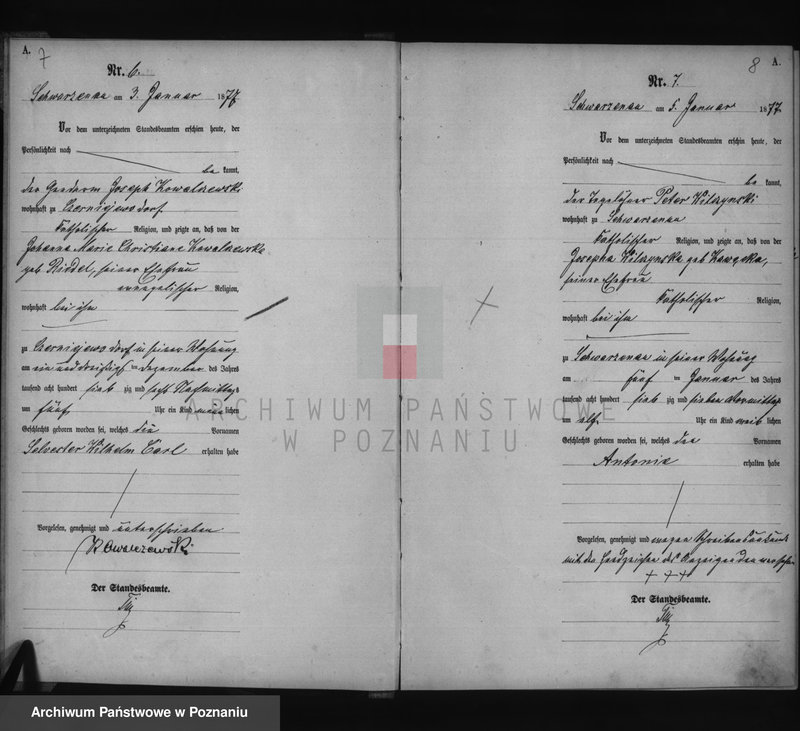 A.
7
Nr. 6.
Schwarzenau am 3. Januar 1877
Vor dem unterzeichneten Standesbeamten erschien heute, der
Persönlichkeit nach
be kannt,
der Gendarm Joseph Kowalczewski
wohnhaft zu Czerniejewo dorf.
katholischer Religion, und zeigte an, daß von der
Johanna Marie Christiane Kowalczewska
geb Riddel, seiner Ehefrau
evangelischer Religion,
wohnhaft bei ihm
zu Czerniejewo dorf in seiner Wohnung
am ein und dreißigst en Dezember des Jahres
tausend acht hundert sieb zig und sechs Nachmittags
um fünf Uhr ein Kind männ lichen
Geschlechts geboren worden sei, welches die Vornamen
Sylvester Wilhelm Carl erhalten habe
Vorgelesen, genehmigt und unterschrieben
Kowalczewski
Der Standesbeamte.
8
A.
Nr. 7.
Schwarzenau am 5. Januar 1877
Vor dem unterzeichneten Standesbeamten erschien heute, der
Persönlichkeit nach
be kannt,
der Tagelöhner Peter
wohnhaft zu Schwarzenau
katholischer Religion, und zeigte an, daß von der
Josepha geb
seiner Ehefrau
katholischer Religion,
wohnhaft bei ihm
zu Schwarzenau in seiner Wohnung
am fünf ten Januar des Jahres
tausend acht hundert sieb zig und sieben Vormittags
um elf Uhr ein Kind weib lichen
Geschlechts geboren worden sei, welches den Vornamen
Antonie erhalten habe
Vorgelesen, genehmigt und wegen Schreibensunkunde
mit den Handzeichen des Anzeigenden versehen
+ + +
Der Standesbeamte.
ARCHIWUM PAŃSTWOWE
W POZNANIU
Archiwum Państwowe w Poznaniu